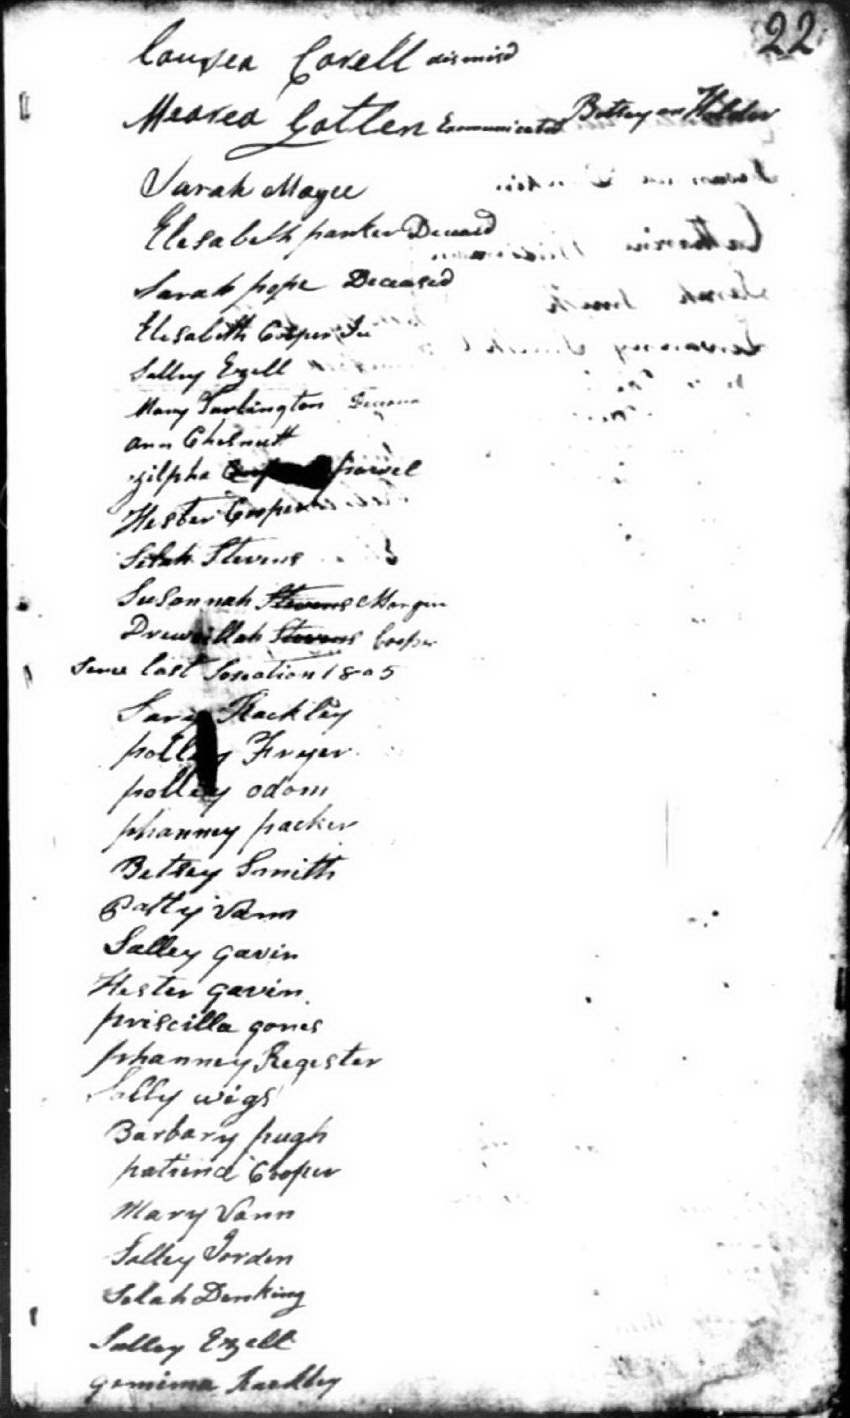 22
Covell dismisd
Gatlen Exmunicated Betsey Holder
Sarah Magee
Elesabeth parker Deceasd
Sarah pope Deceased
Elesabeth Cooper Ju
Salley Ezell
Mary Tarlington
ann Chesnutt
zilpha
Hester Cooper
Selah Stevens
Susannah Stevens Morgin
Drewsillah Stevens Cooper
Since last Sosiation 1805
Sary Hackley
polley Fryer
polley odom
phanney packer
Betsey Smith
Patty Vann
Salley gavin
Hester gavin
priscilla gones
phanney Regester
Salley wigs
Barbary pugh
patiend Cooper
Mary Vann
Salley Jorden
Selah Denking
Salley Ezell
gemima Hackley